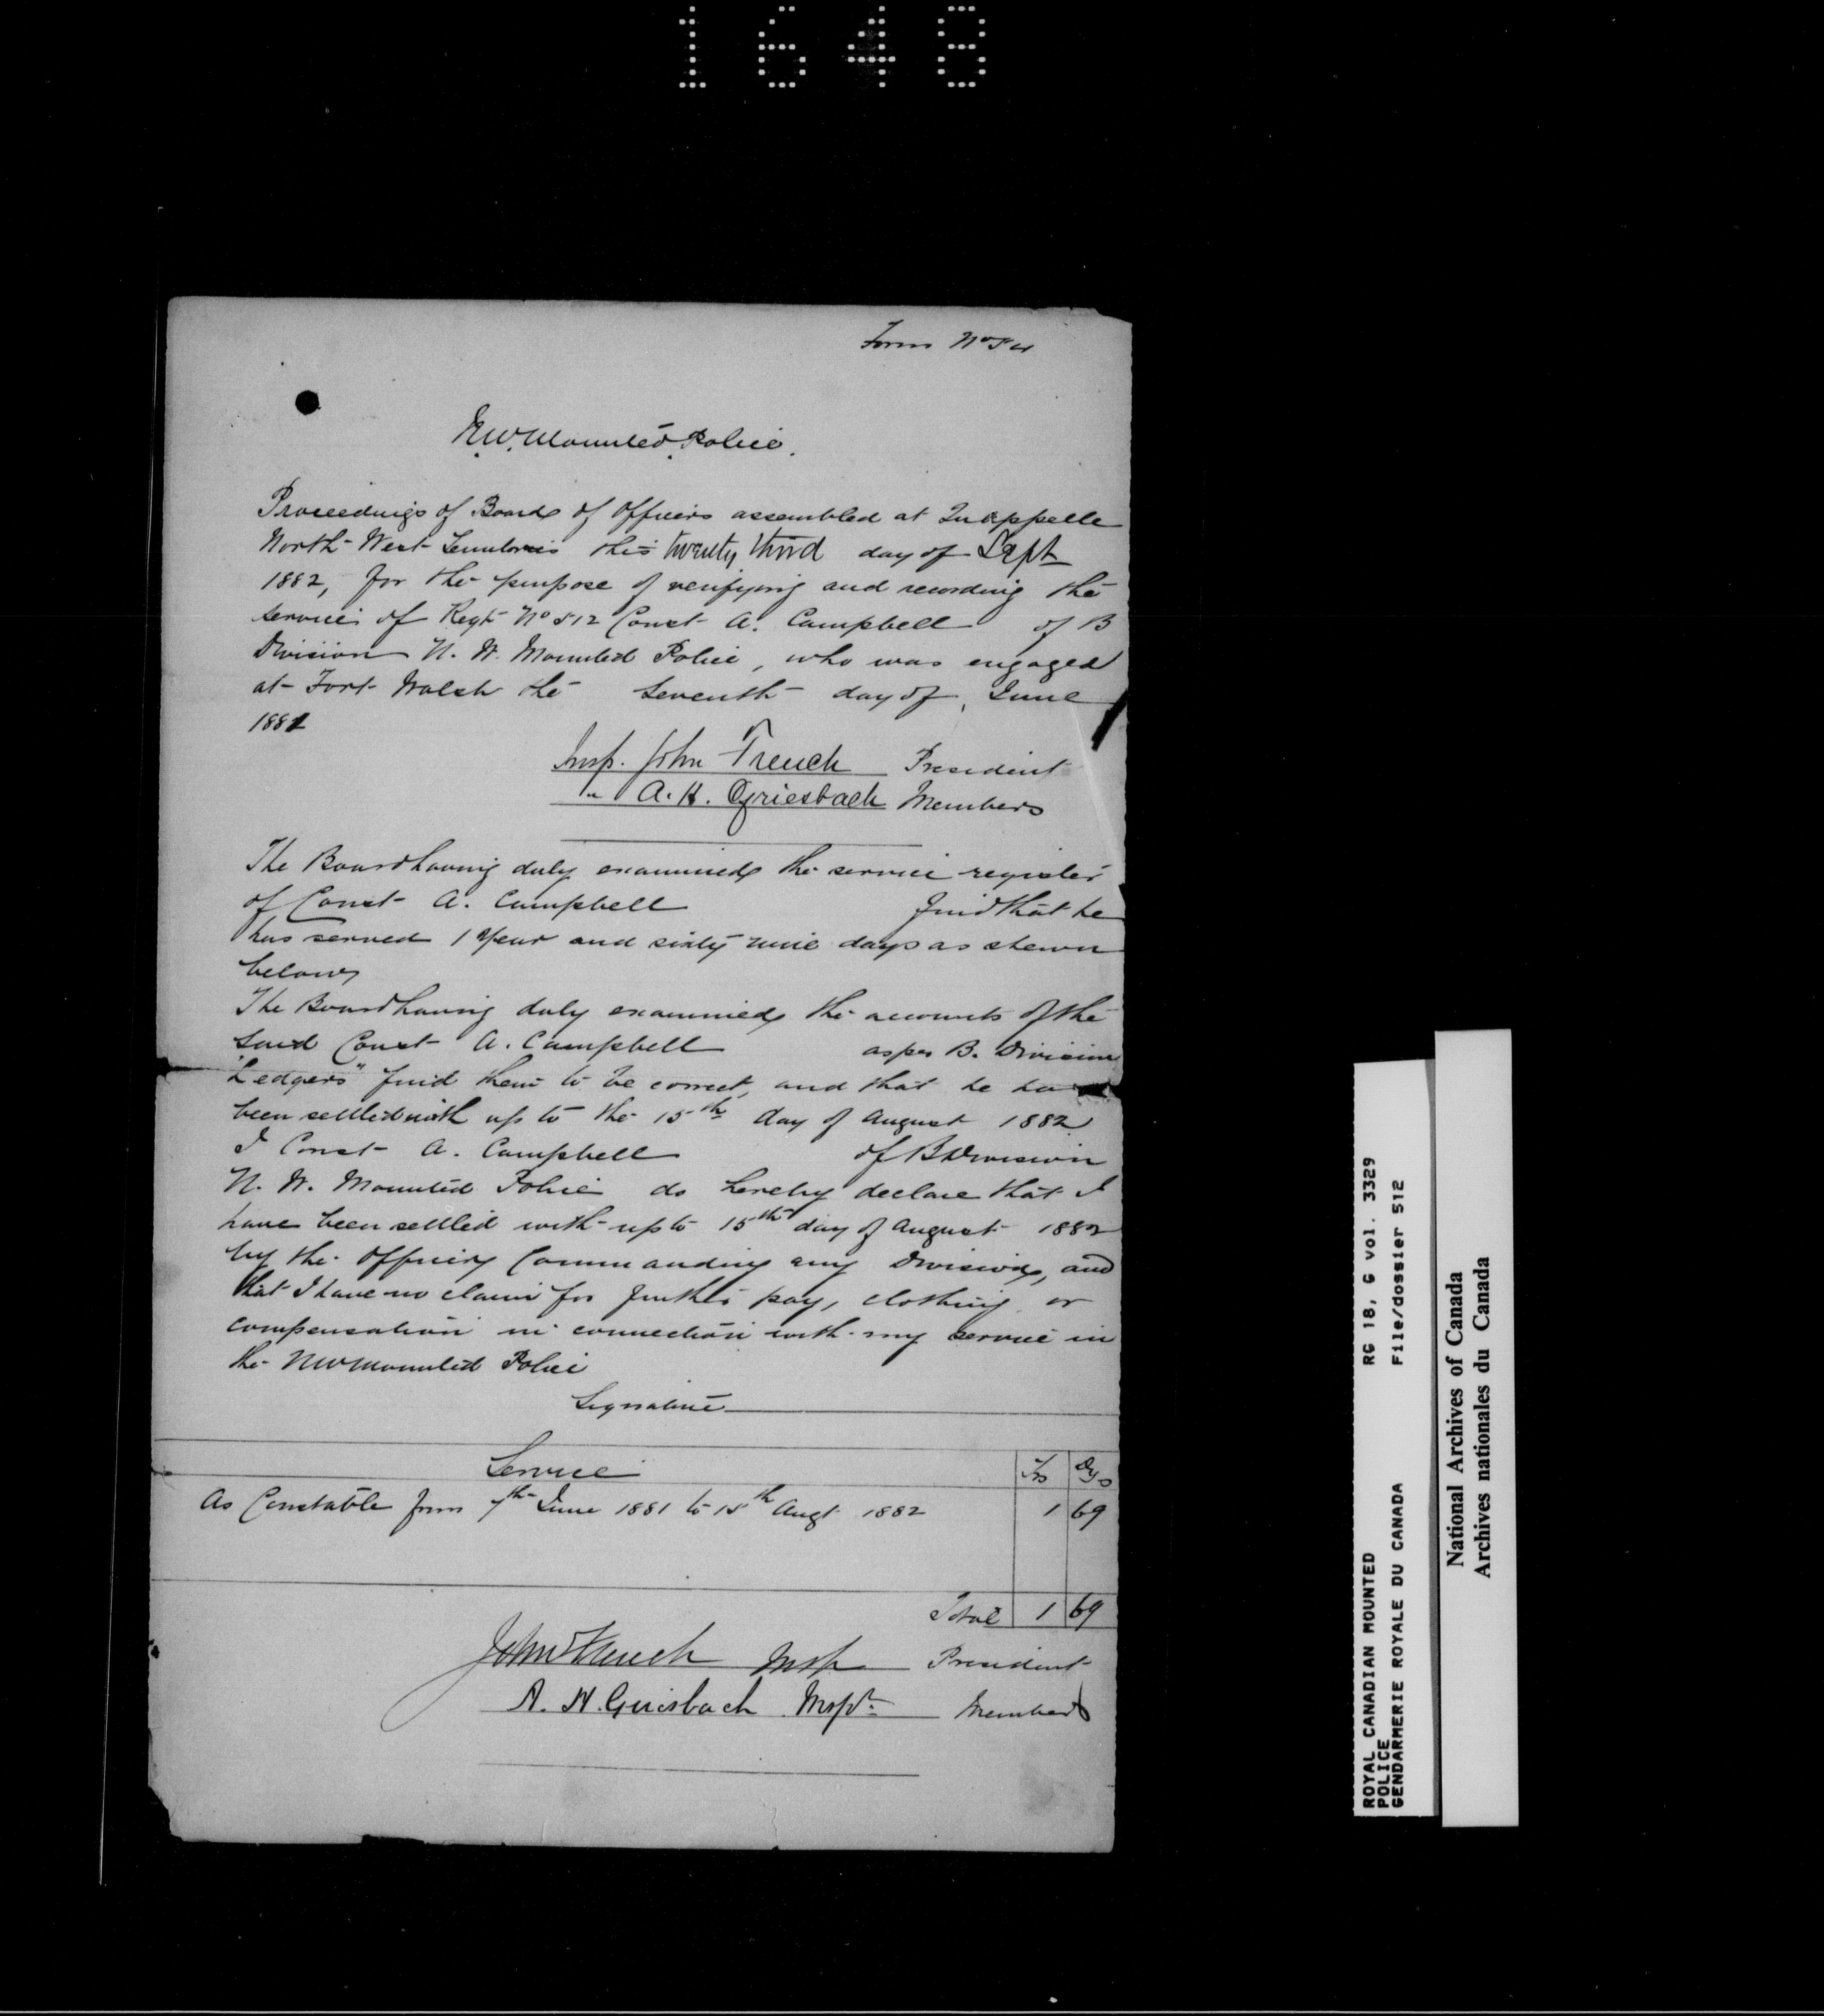 1648
Form No 54
N.W. Mounted Police.
Proceedings of Board of Officers assembled at Quappelle
North West Territories this twenty third day of Sept
1882, for the purpose of verifying and recording the
service of Regt No 512 Const A. Campbell of B
Division N. W. Mounted Police, who was engaged
at Fort Walsh the seventh day of June
1881
Insp. John French President
" A. H. Griesbach Members
The Board having duly examined the service register
of Const A. Campbell find that he
has served 1 Year and sixty nine days as shewn
below,
The Board having duly examined the accounts of the
said Const A. Campbell as per B. Division
Ledgers" find them to be correct, and that he has
been settled with up to the 15th day of August 1882
I Const A. Campbell of B Division
N. W. Mounted Police do hereby declare that I
have been settled with up to 15th day of August 1882
by the Officer Commanding my Division, and
that I have no claim for further pay, clothing or
compensation in connection with my service in
the NW Mounted Police
Signature
Service Yrs Dys
As Constable from 7th June 1881 to 15th Augt 1882 1 69
Total 1 69
John French Insp President
A. H. Griesbach Inspr Members
ROYAL CANADIAN MOUNTED RG 18, G vol. 3329
POLICE
GENDARMERIE ROYALE DU CANADA File/dossier 512
National Archives of Canada
Archives nationales du Canada